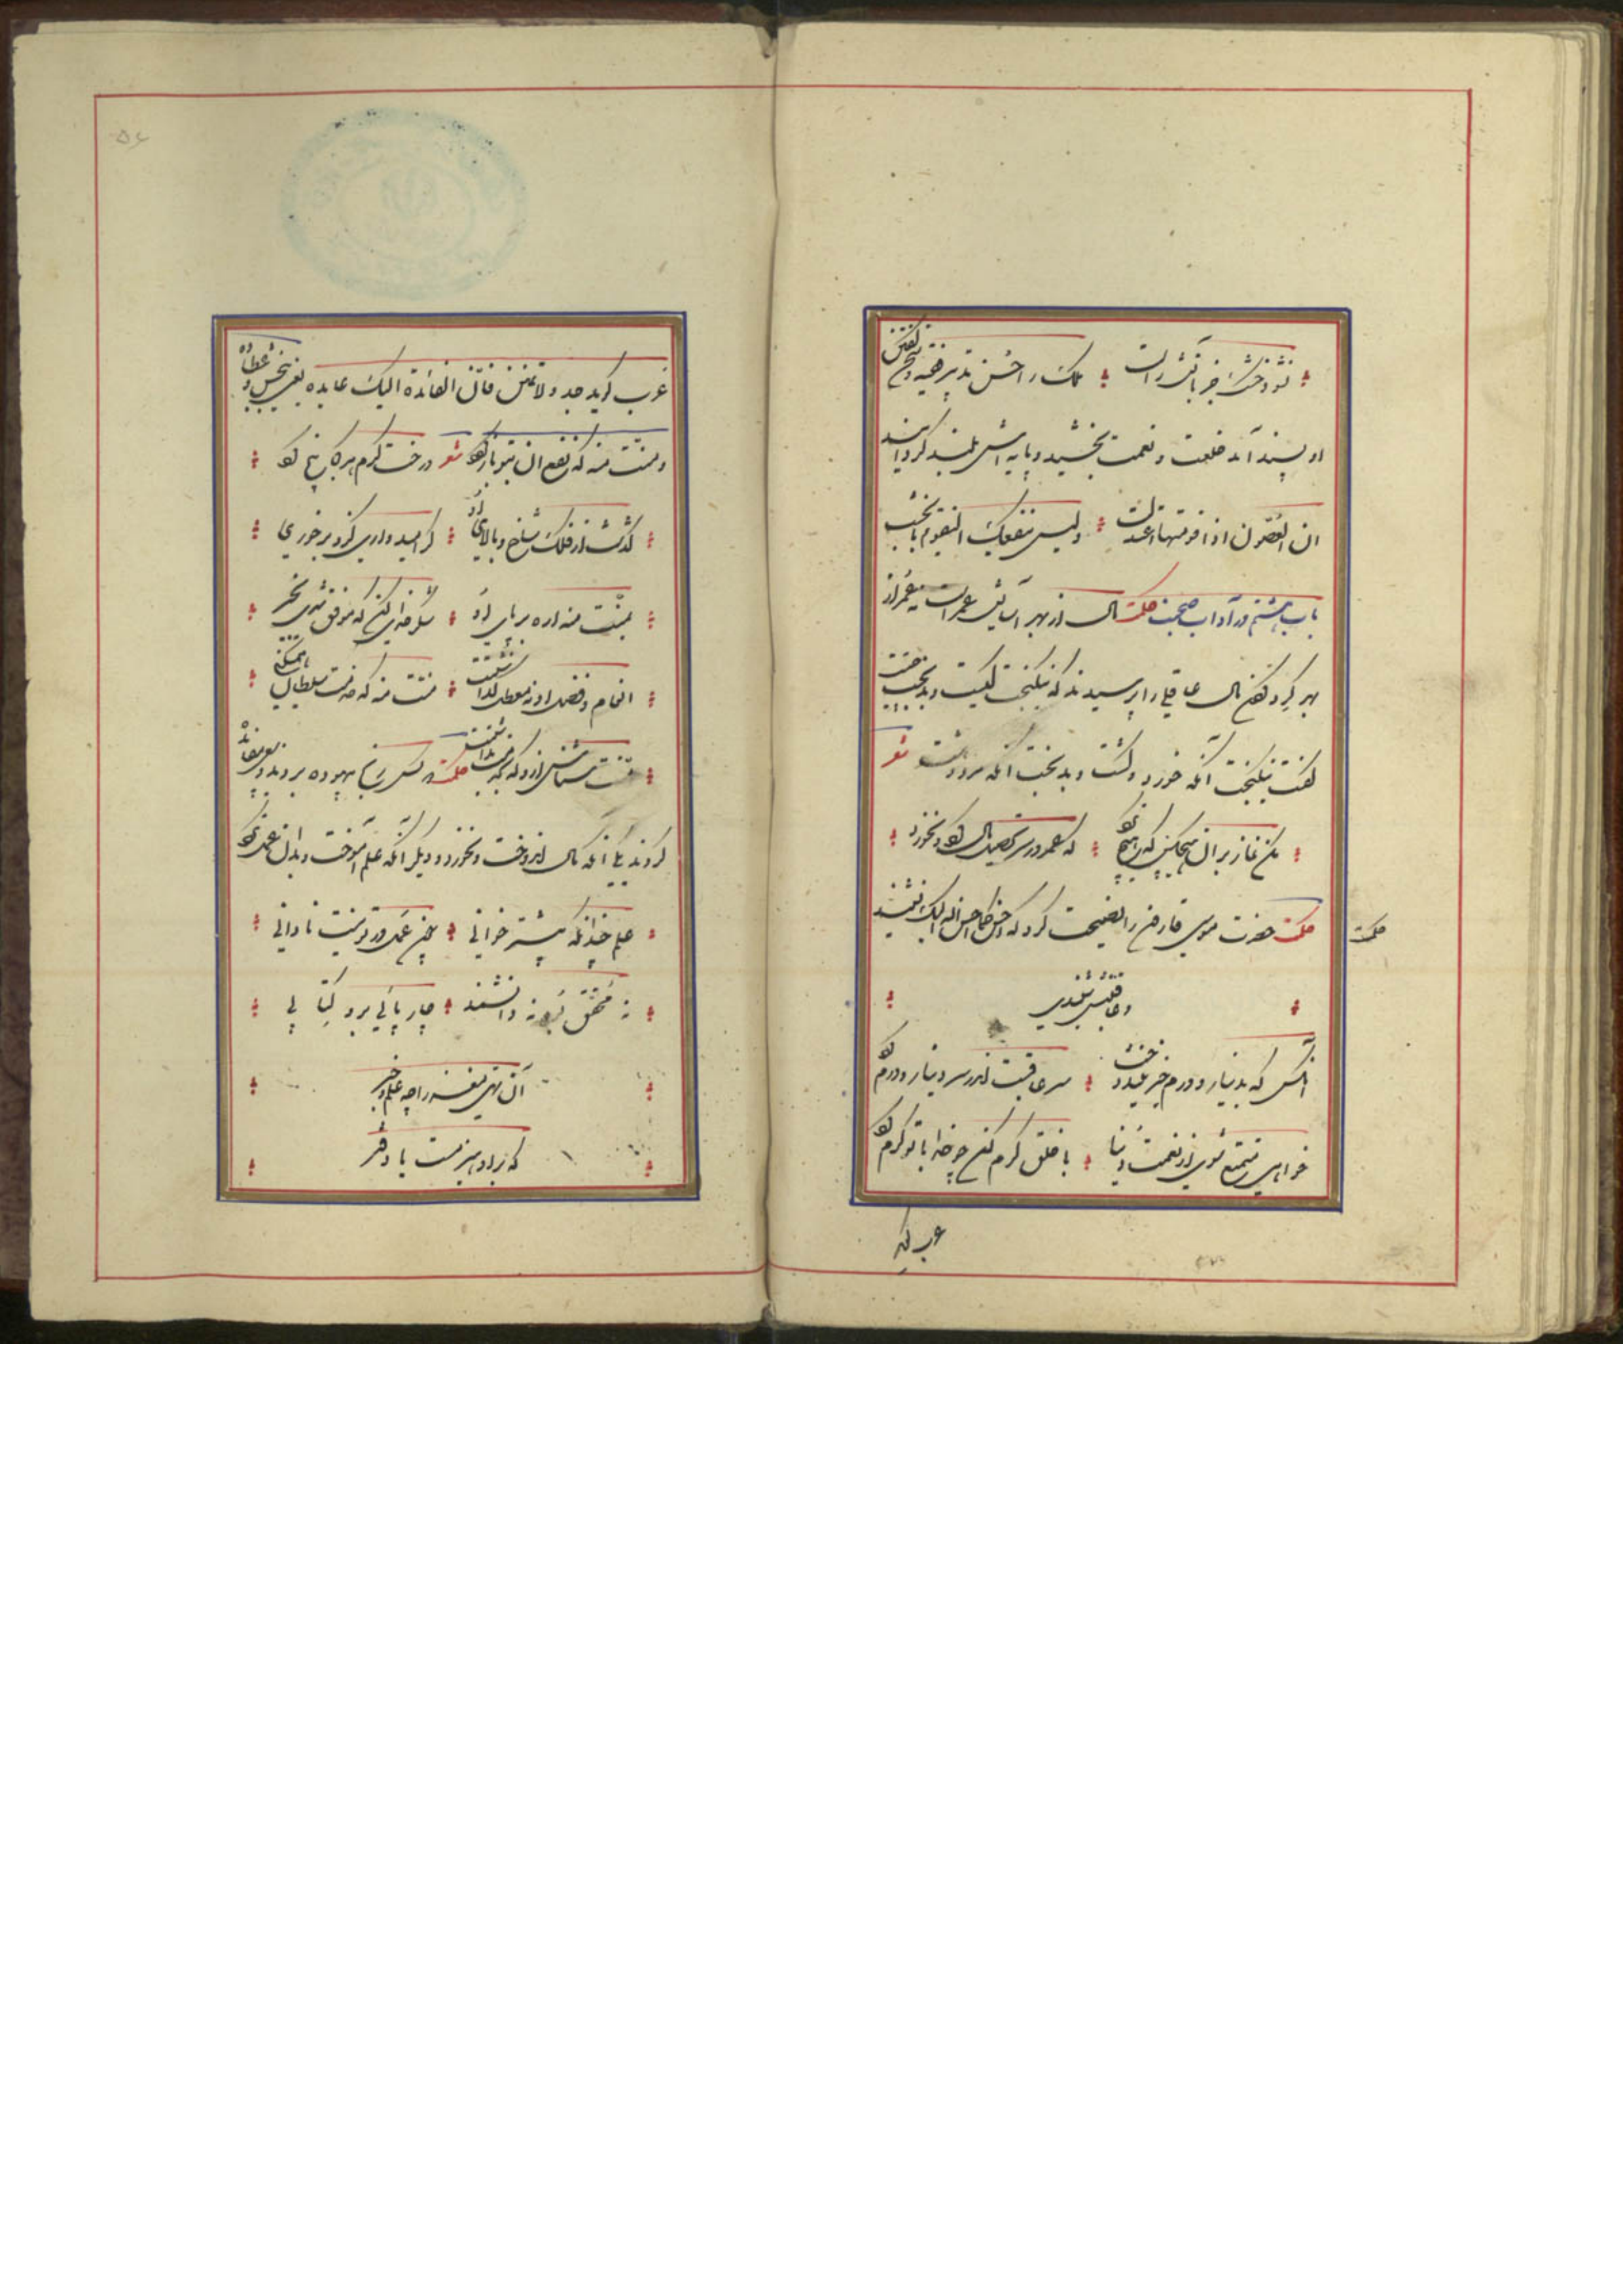 نشود خشک جز بآتش راست ملک را حسن تدبیر فقیه و سخن گفتن
او پسند آمد خلعت و نعمت بخشید و پایه اش بلند گردانید
ان الغصون اذا قومتها اعتدلت ولیس ینفعک التقویم بالخشب
باب هشتم در آداب صحبت حکمت مال از بهر آسایش عمر است نه عمر از
بهر گرد کردن مال عاقلی را پرسیدند که نیکبخت کیست و بدبخت چیست
گفت نیکبخت آنکه خورد و کشت و بدبخت آنکه مرد و هشت شعر
مکن نماز بر آن هیچکس که هیچ نکرد که عمر در سر تحصیل مال کرد و نخورد
حکمت حضرت موسی قارون را نصیحت کرد که احسن کما احسن الله الیک نشنید
حکمت
و عاقبتش شنیدی
آنکس که بدینار و درم خیر نیندوخت سر عاقبت اندر سر دینار و درم کرد
خواهی متمتع شوی از نعمت دنیا با خلق کرم کن چو خدا با تو کرم کرد
عرب گوید
عرب گوید جد ولا تمنن فان الفائدة الیک عایده یعنی ببخش و عطا ده
و منت منه که نفع آن بتو باز گردد شعر درخت کرم هر کجا بیخ کرد
گذشت از فلک شاخ و بالای او گر امیدواری کزو بر خوری
بمنت منه اره بر پای او شکر خدای کن که موفق شدی بخیر
ز انعام و فضل او نه معطل گذاشتت منت منه که خدمت سلطان همیکنی
منت شناس ازو که بخدمت بداشتت حکمت دو کس رنج بیهوده بردند و سعی بیفایده
کردند یکی آنکه مال اندوخت و نخورد و دیگر آنکه علم آموخت و بدان عمل نکرد
علم چندانکه بیشتر خوانی چون عمل در تو نیست نادانی
نه محقق بود نه دانشمند چارپائی برو کتابی
آن تهی مغز را چه علم و خبر
که برو هیزمست یا دفتر